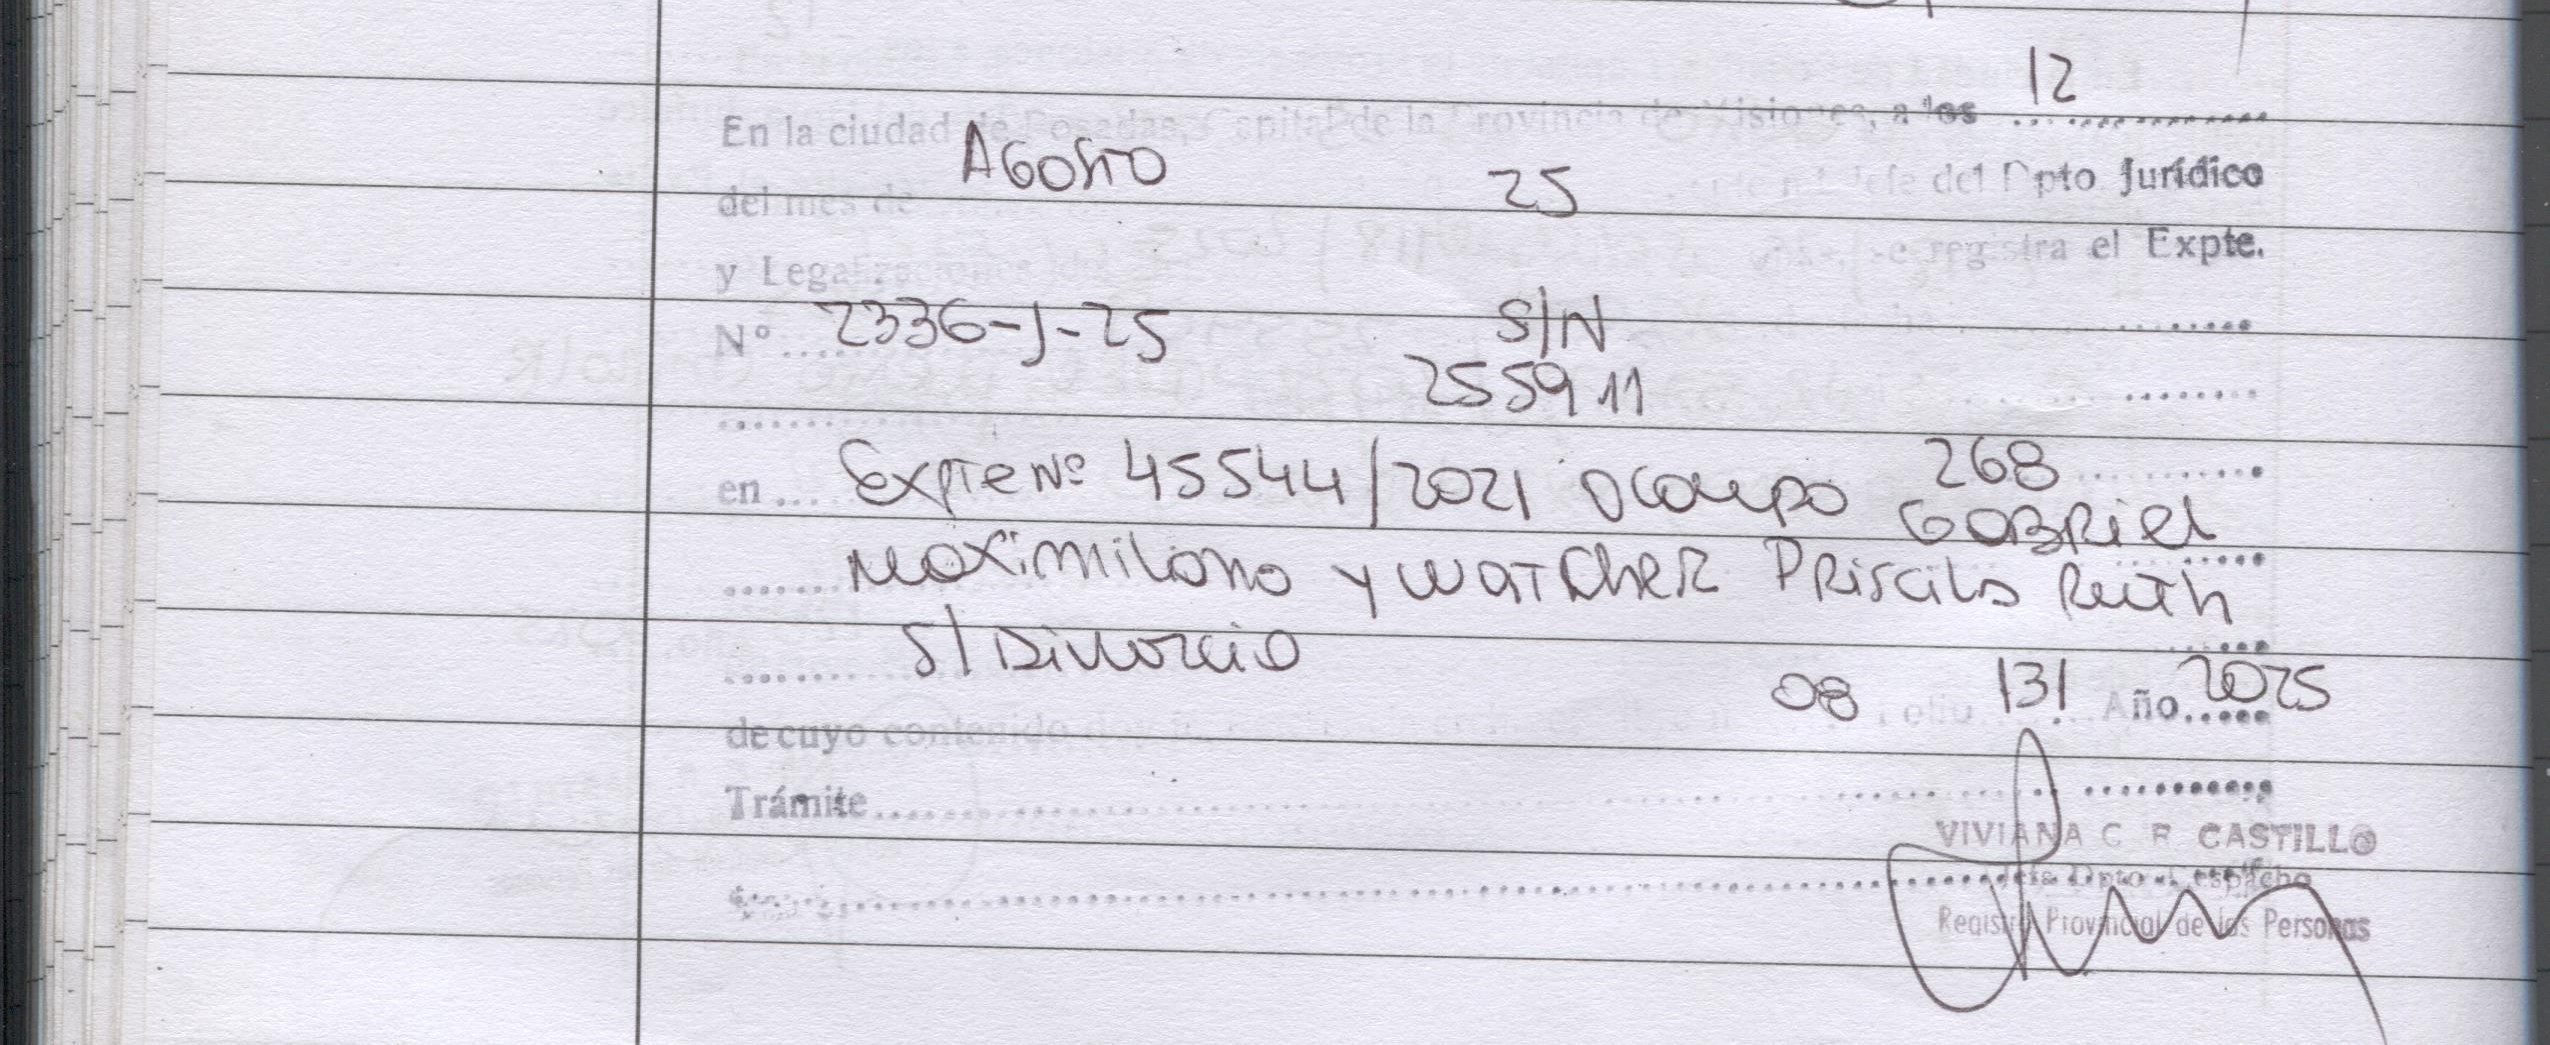 12
En la ciudad de Posadas, Capital de la Provincia de Misiones, a los ....
Agosto 25
del mes de Jefe del Dpto Jurídico
y Legalizaciones se registra el Expte.
Nº .... 2336-J-25 S/N
255911
268
en .... Expte Nº 45544/2021 Ocampo Gabriel
Maximiliano y Watcher Priscila Ruth
S/Divorcio
08 131 Año 2025
de cuyo contenido Folio
Trámite
VIVIANA C. R. CASTILLO
Jefa Dpto. Despacho
Registro Provincial de las Personas